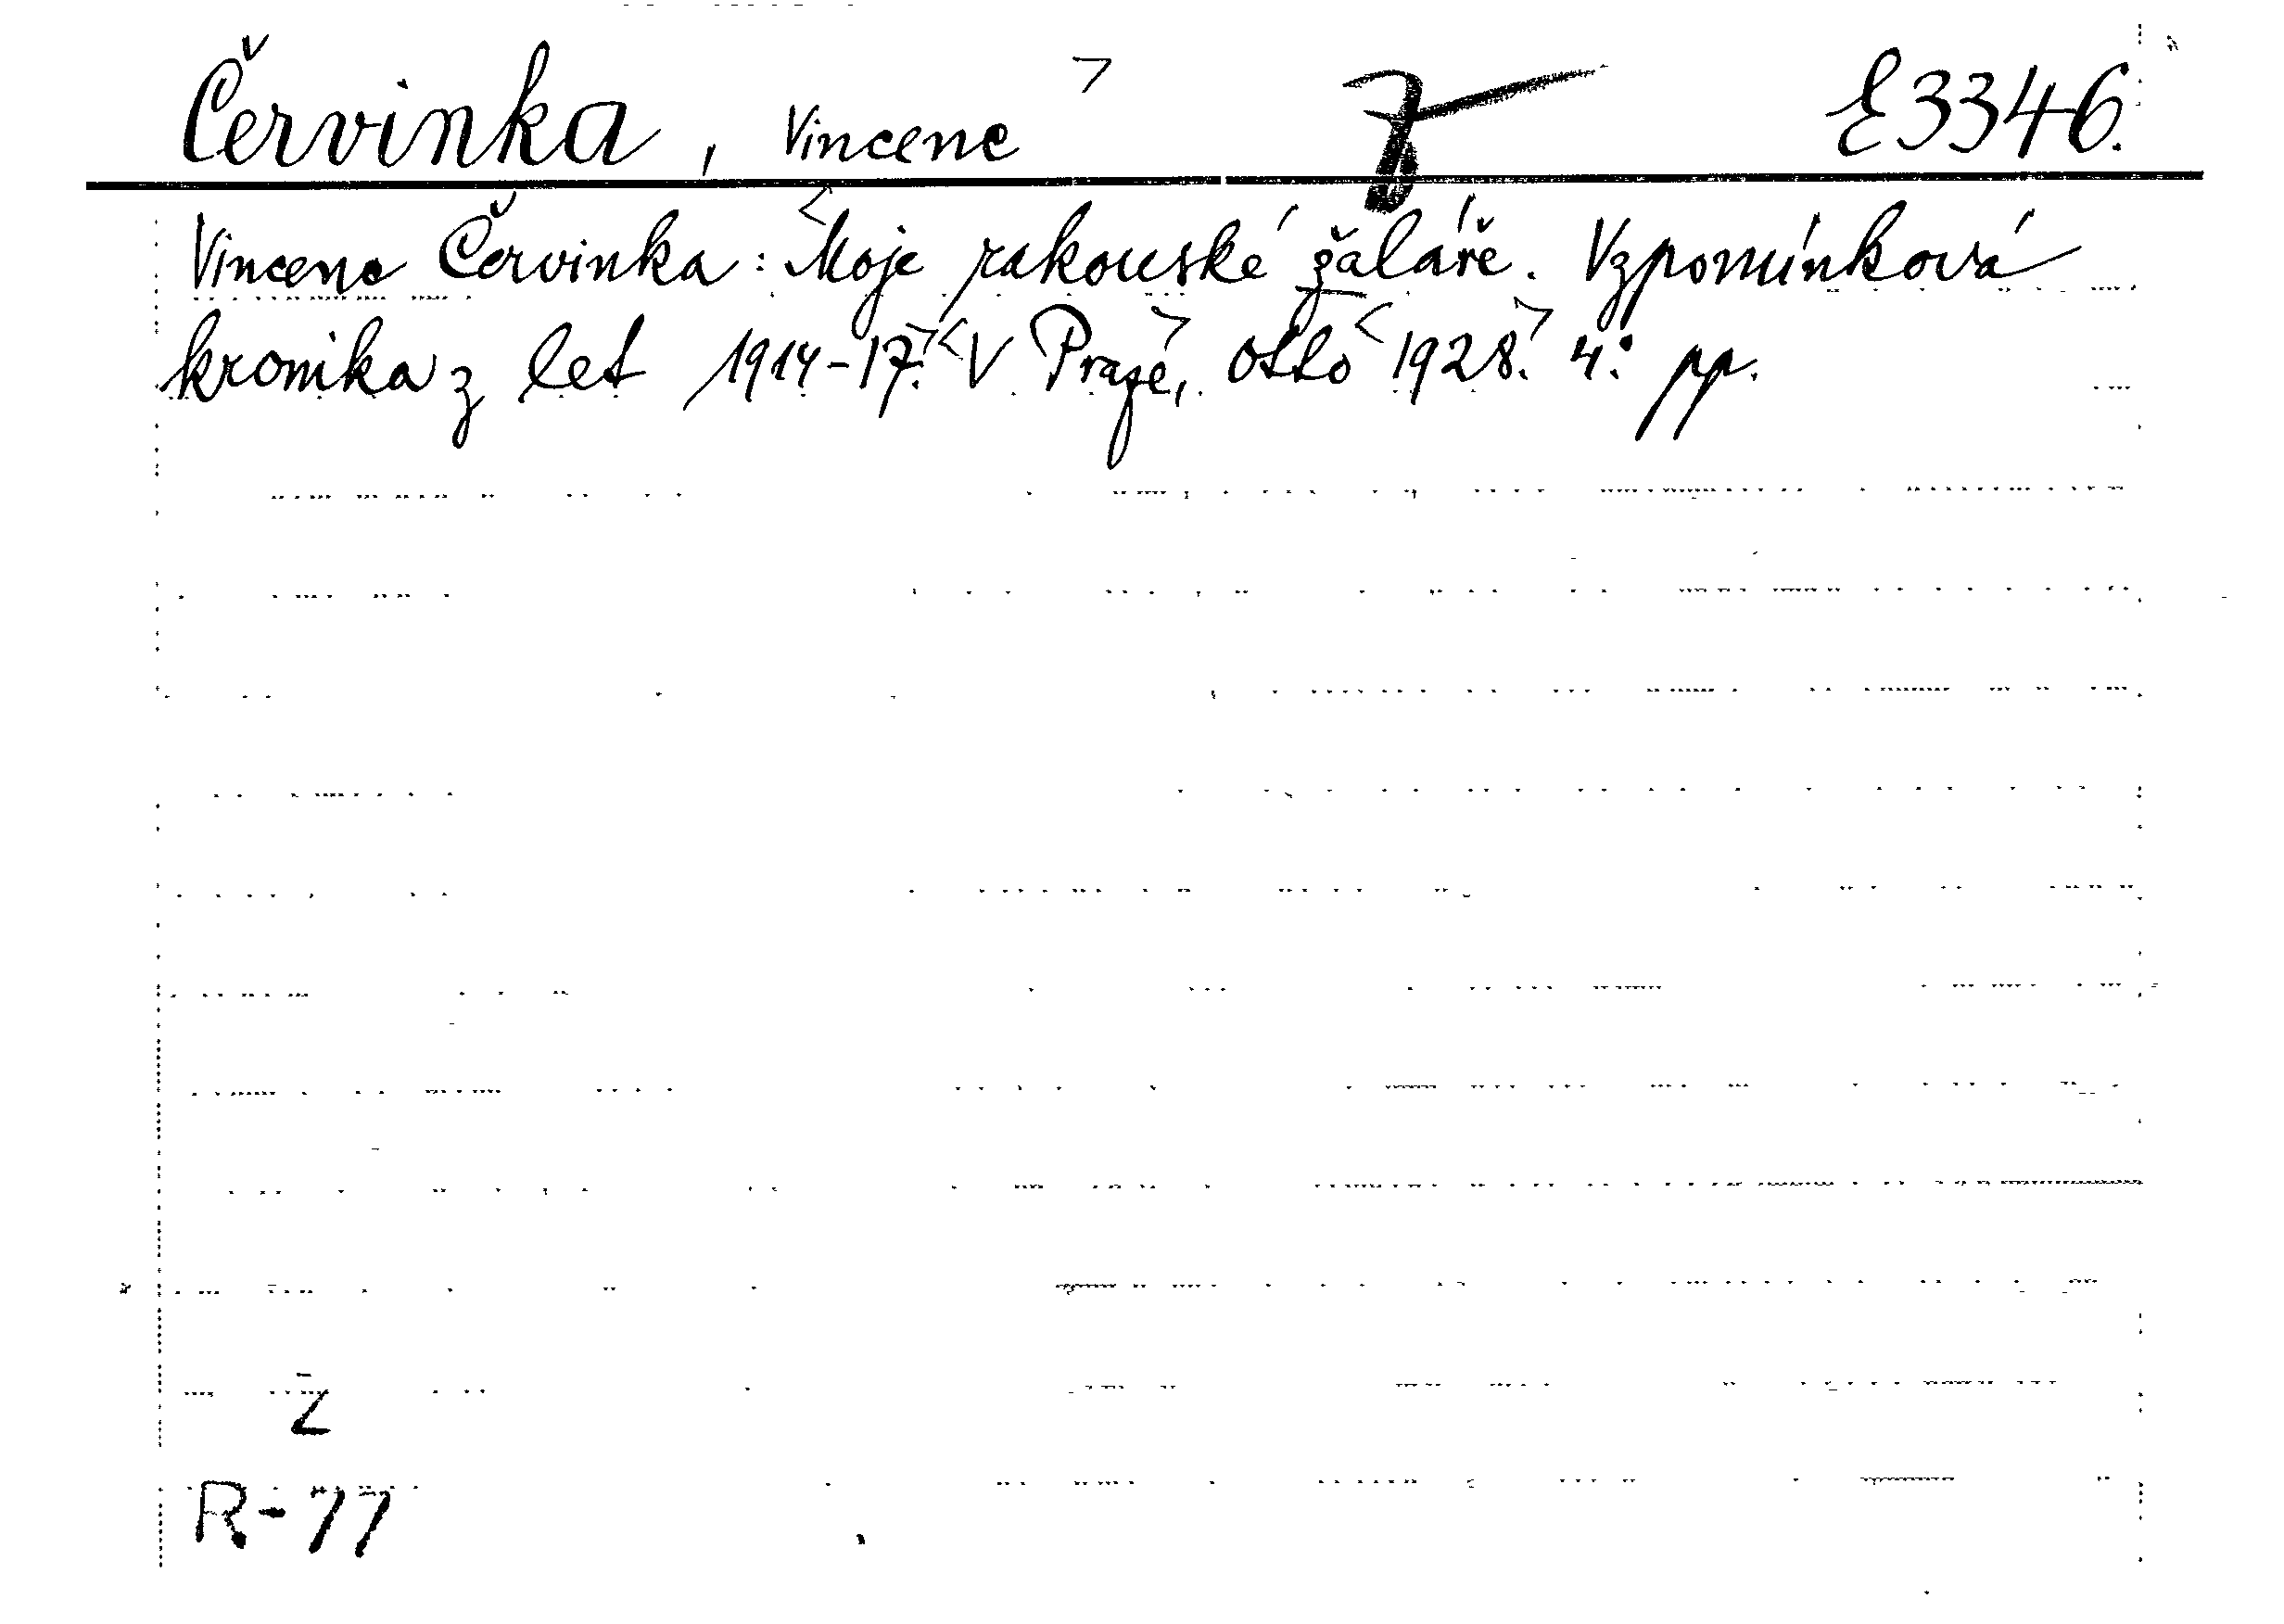 Červinka, Vincenc E 3346.
Vincenc Červinka: Moje rakouské žaláře. Vzpomínková
kronika z let 1914-17. V Praze, Otto 1928. 4° pp.
Z
R-77